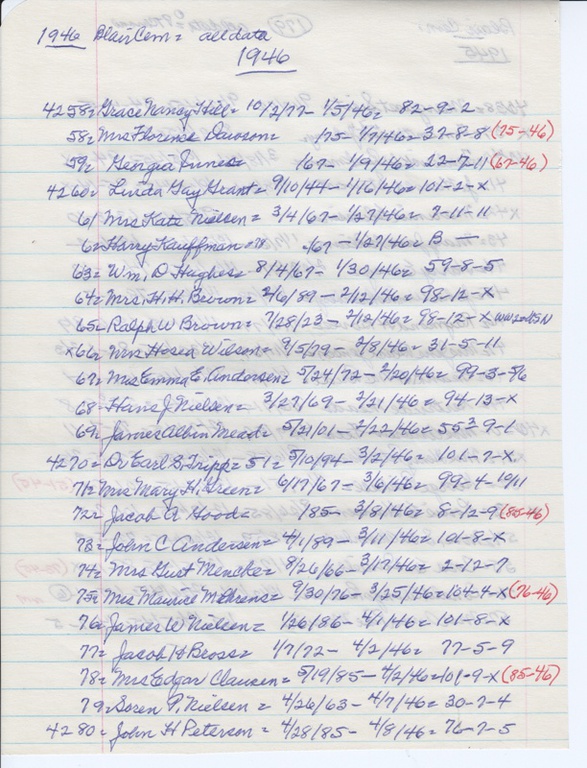 1946 Blair Cem= all data
1946
4258= Grace Nancy Hill= 10/2/77- 1/5/46= 82-9-2
58= Mrs Florence Dawson= /75- 1/7/46= 37-8-8 (75-46)
59= Georgia Jones= /67- 1/9/46= 22-7-11 (67-46)
4260= Linda Gay Grant= 9/10/44- 1/16/46= 101-2-X
61 Mrs Kate Nielsen= 3/4/67- 1/27/46= 7-11-11
62= Harry Kauffman /67- 1/27/46= B —
63= Wm. D Hughes= 8/4/67- 1/30/46= 59-8-5
64= Mrs. H. H. Brown= 2/6/89- 2/12/46= 98-12-X
65= Ralph W Brown= 7/28/23- 2/12/46= 98-12-X WW2=USN
X66= Mrs Hosea Wilson= 9/5/79- 2/8/46= 31-5-11
67= Mrs Emma E. Andersen= 5/24/72- 2/20/46= 99-3-56
68- Hans J Nielsen= 3/27/69- 2/21/46= 94-13-X
69= James Albin Mead= 5/21/01- 2/22/46= 55 3 9-1
4270= Dr Earl S. Tripp= 51= 5/10/94- 3/2/46= 101-7-X
71= Mrs Mary H. Green= 6/17/67= 3/6/46= 99-4-10/11
72= Jacob A Hood= /85- 3/8/46= 8-12-9 (85-46)
73= John C Andersen= 4/1/89- 3/11/46= 101-8-X
74= Mrs Gust Mencke= 8/26/66- 3/17/46= 2-12-7
75= Mrs Maurice Mehrens= 9/30/76- 3/25/46= 104-4-X (76-46)
76= James W Nielsen= 1/26/86- 4/1/46= 101-8-X
77= Jacob H Bross= 1/7/72- 4/2/46= 77-5-9
78= Mrs Edgar Clausen= 5/19/85- 4/2/46= 101-9-X (85-46)
79= Soren P. Nielsen= 4/26/63- 4/7/46= 30-7-4
4280= John H Peterson= 4/28/85- 4/8/46= 76-7-5